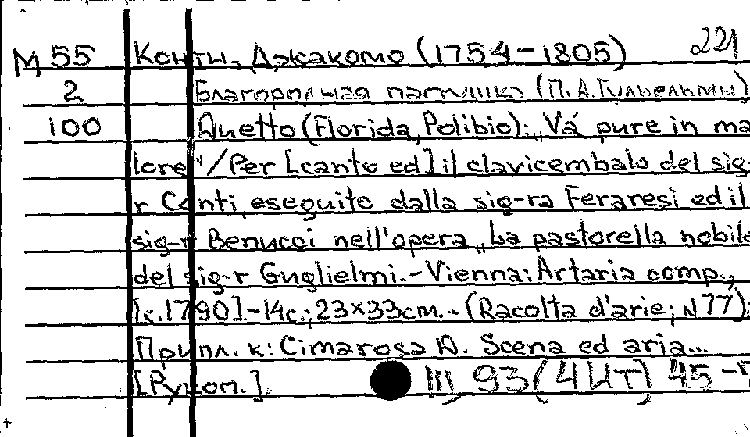 М 55 Конти, Джакомо (1754-1805) 221
2 Благородная пастушка (П.А.Гульельми)
100 Duetto (Florida, Polibio): „Vá pure in ma
lore"/Per [canto ed] il clavicembalo del sig-
r Conti, eseguito dalla sig-ra Feraresi ed il
sig-r Benucci nell'opera „La pastorella nobile
del sig-r Guglielmi.-Vienna: Artaria comp.,
[c.1790]-14с.; 23×33cm.-(Racolta d'arie; N 77):
Припл. к: Cimarosa D. Scena ed aria...
[Рукоп.] III, 93 (4 ИТ) 45-